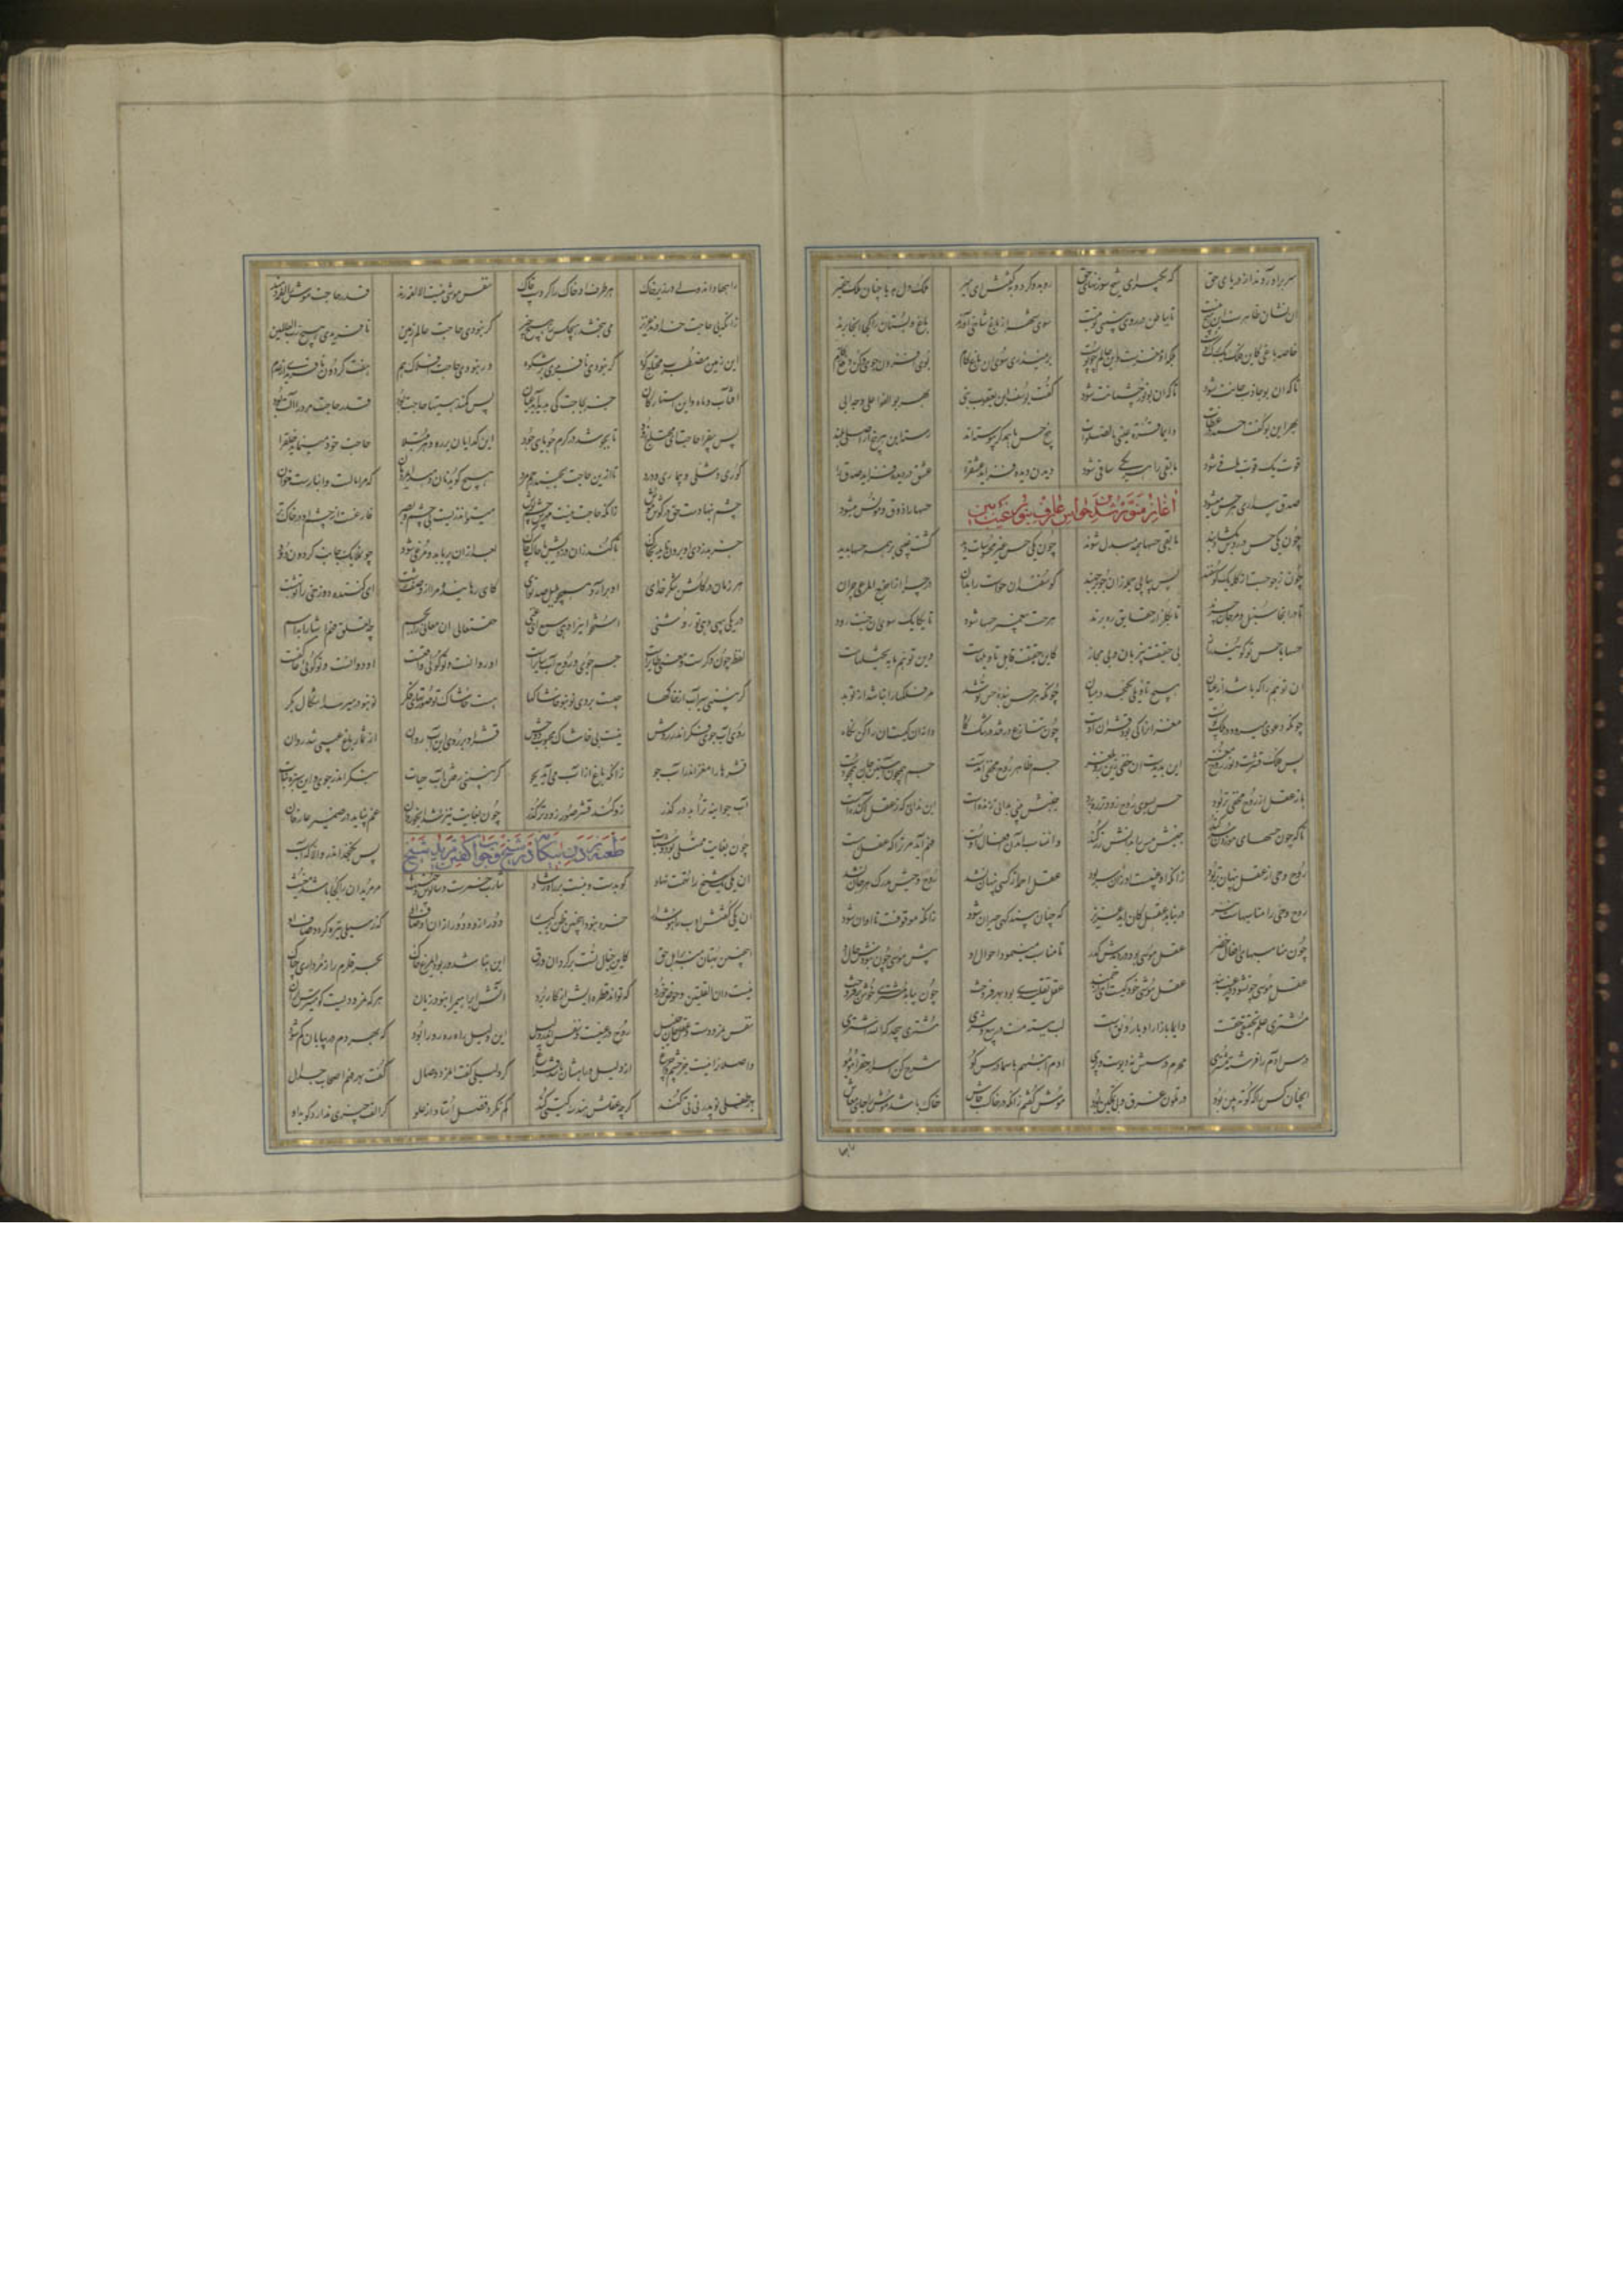 سر برآوردند از دریای حق که بگیر ای شیخ سوزنهای حق رو بدو کرد و بگفتش ای امیر ملک دل به یا چنان ملک حقیر
این نشان ظاهرست این هیچ نیست تا بباطن در روی بینی تو بیست سوی شهر از باغ شاخی آورند باغ و بستان را کجا آنجا برند
خاصه باغی کاین فلک یک برگ اوست بلکه آن مغزست و این عالم چو پوست بر نمیداری سوی آن باغ گام بوی افزون جوی و کن دفع زکام
تا که آن بو جاذب جانت شود تا که آن بو نور چشمانت شود گفت یوسف ابن یعقوب نبی بهر بو القوا علی وجه ابی
بهر این بو گفت احمد در عظات دایما قرة عینی فی الصلوة پنج حس با همدگر پیوسته‌اند رسته این هر پنج از اصلی بلند
قوت یک قوت باقی شود مابقی را هر یکی ساقی شود دیدن دیده فزاید عشق را عشق در دیده فزاید صدق را
صدق بیداری هر حس میشود حسها را ذوق مونس میشود
آغاز منور شدن حواس عارف بنور غیب بین
چون یکی حس در روش بگشاد بند مابقی حسها همه مبدل شوند چون یکی حس غیر محسوسات دید گشت غیبی بر همه حسها پدید
چون ز جو جست از گله یک گوسفند پس پیاپی جمله زان سو برجهند گوسفندان حواست را بران در چرا از اخرج المرعی چران
تا در آنجا سنبل و تا بگلزار حقایق ره برند هر حست پیغمبر حسها شود تا یکایک سوی آن جنت رود
حسها با حس تو گویند راز بی حقیقت بی زبان و بی مجاز کاین حقیقت قابل تاویلهاست وین توهم مایه تخییلهاست
آن توهم را که باشد از عیان هیچ تاویلی نگنجد در میان چونکه هر حس بنده حس تو شد مر فلکها را نباشد از تو بد
چونکه دعوی میرود در ملک پوست مغز آن کی بود قشر آن اوست چون تنازع در فتد در تنگ کاه دانه آن کیست آن را کن نگاه
پس فلک قشرست و نور روح مغز این پدیدست آن خفی زین رو ملغز جسم ظاهر روح مخفی آمدست جسم همچون آستین جان همچو دست
باز عقل از روح مخفی تر بود حس سوی روح زودتر ره برد جنبشی بینی بدانی زنده است این ندانی که ز عقل آکنده است
تا که جنبشهای موزون سر کند جنبش مس را بدانش زر کند زان مناسب آمدن افعال دست فهم آید مر ترا که عقل هست
روح وحی از عقل پنهان تر بود زانکه او غیبست او زان سر بود عقل احمد از کسی پنهان نشد روح وحیش مدرک هر جان نشد
روح وحیی را مناسبهاست نیز در نیابد عقل کان آمد عزیز که چنان بیند گهی حیران شود زانکه موقوفست تا او آن شود
چون مناسبهای افعال خضر عقل موسی بود در دیدش کدر نامناسب مینمود احوال او پیش موسی چون نبودش حال او
عقل موسی چون شود در غیب بند عقل موشی خود کیست ای ارجمند عقل تقلیدی بود بهر فروخت چون بیابد مشتری خوش برفروخت
مشتری علم تحقیقی حقست دایما بازار او با رونقست لب ببسته مست در بیع و شری مشتری بیحد که الله اشتری
درس آدم را فرشته مشتری محرم درسش نه دیوست و پری آدم انبئهم باسما درس گو شرح کن اسرار حق را مو بمو
آنچنان کس را که کوته بین بود در تلون غرق و بی تمکین بود موش گفتم زانکه در خاکست جاش خاک باشد موش را جای معاش
راهها
راهها داند ولی در زیر خاک هر طرف او خاک را کردست چاک نفس موشی نیست الا لقمه رند قدر حاجت موش را عقلی دهند
زانکه بی حاجت خداوند عزیز می نبخشد هیچکس را هیچ چیز گر نبودی حاجت عالم زمین نافریدی هیچ رب العالمین
این زمین مضطرب محتاج کوه گر نبودی نافریدی پر شکوه ور نبودی حاجت افلاک هم هفت گردون نافریدی از عدم
آفتاب و ماه و این استارگان جز بحاجت کی پدید آمد عیان پس کمند هستها حاجت بود قدر حاجت مرد را آلت بود
پس بیفزا حاجت ای محتاج زود تا بجوشد در کرم دریای جود این گدایان بر ره و هر مبتلا حاجت خود مینماید خلق را
کوری و شلی و بیماری و درد تا ازین حاجت بجنبد رحم مرد هیچ گوید نان دهید ای مردمان که مرا مالست و انبارست و خوان
چشم ننهادست حق در کورموش زانکه حاجت نیست چشمش بهر نوش میتواند زیست بی چشم و بصر فارغست از چشم او در خاک تر
جز بدزدی او برون ناید ز خاک تا کند خالق از آن دزدیش پاک بعد از آن پر یابد و مرغی شود چون ملایک جانب گردون رود
هر زمان در گلشن شکر خدای او برآرد همچو بلبل صد نوای کای رهاننده مرا از وصف زشت ای کننده دوزخی را تو بهشت
در یکی پیهی دهی تو روشنی استخوانی را دهی سمع ای غنی چه تعلق آن معانی را بجسم چه تعلق فهم اشیا را باسم
لفظ چون وکرست و معنی طایرست جسم جوی و روح آب سایرست او روانست و تو گویی واقفست او دوانست و تو گویی عاکفست
گر نبینی سیر آب از خاکها چیست بر وی نو بنو خاشاکها هست خاشاک تو صورتهای فکر نو بنو در میرسد اشکال بکر
روی آب جوی فکر اندر روش نیست بی خاشاک محبوب و وحش قشرها بر روی این آب روان از ثمار باغ غیبی شد روان
قشرها را مغز اندر آب جو زانکه باغ از آب می آید بجو گر نبینی رفتن آب حیات بنگر اندر جوی و این سیر نبات
آب چو انبه تر آید در گذر زو کند قشر صور زودتر گذر چون بغایت تیز شد این جو روان غم نپاید در ضمیر عارفان
چون بغایت ممتلی بود و شتاب پس نگنجد اندرو الا که آب
طعنه زدن بیگانه در شیخ و جواب گفتن مرید شیخ
آن یکی یک شیخ را تهمت نهاد کو بدست و نیست بر راه رشاد شارب خمرست و سالوس و خبیث مر مریدان را کجا باشد مغیث
آن یکی گفتش ادب را هوش دار خرد نبود اینچنین ظن بر کبار دور ازو و دور از آن اوصاف او که ز سیلی تیره گردد صاف او
اینچنین بهتان منه بر اهل حق کاین خیال تست برگردان ورق این نباشد ور بود ای مرغ خاک بحر قلزم را ز مرداری چه باک
نیست دون القلتین و حوض خرد که تواند قطره‌ایش از کار برد آتش ابراهیم را نبود زیان هر که نمرودیست گو میترس از آن
نفس نمرودست و عقل و جان خلیل روح در عینست و نفس اندر دلیل این دلیل راه رهرو را بود که بهر دم در بیابان گم شود
واصلان را نیست جز چشم و چراغ از دلیل و راهشان باشد فراغ گر دلیلی گفت آن مرد وصال گفت بهر فهم اصحاب جدال
بهر طفلی نو پدر تی تی کند گرچه عقلش هندسه گیتی کند کم نگردد فضل استاد از علو گر الف چیزی ندارد گوید او